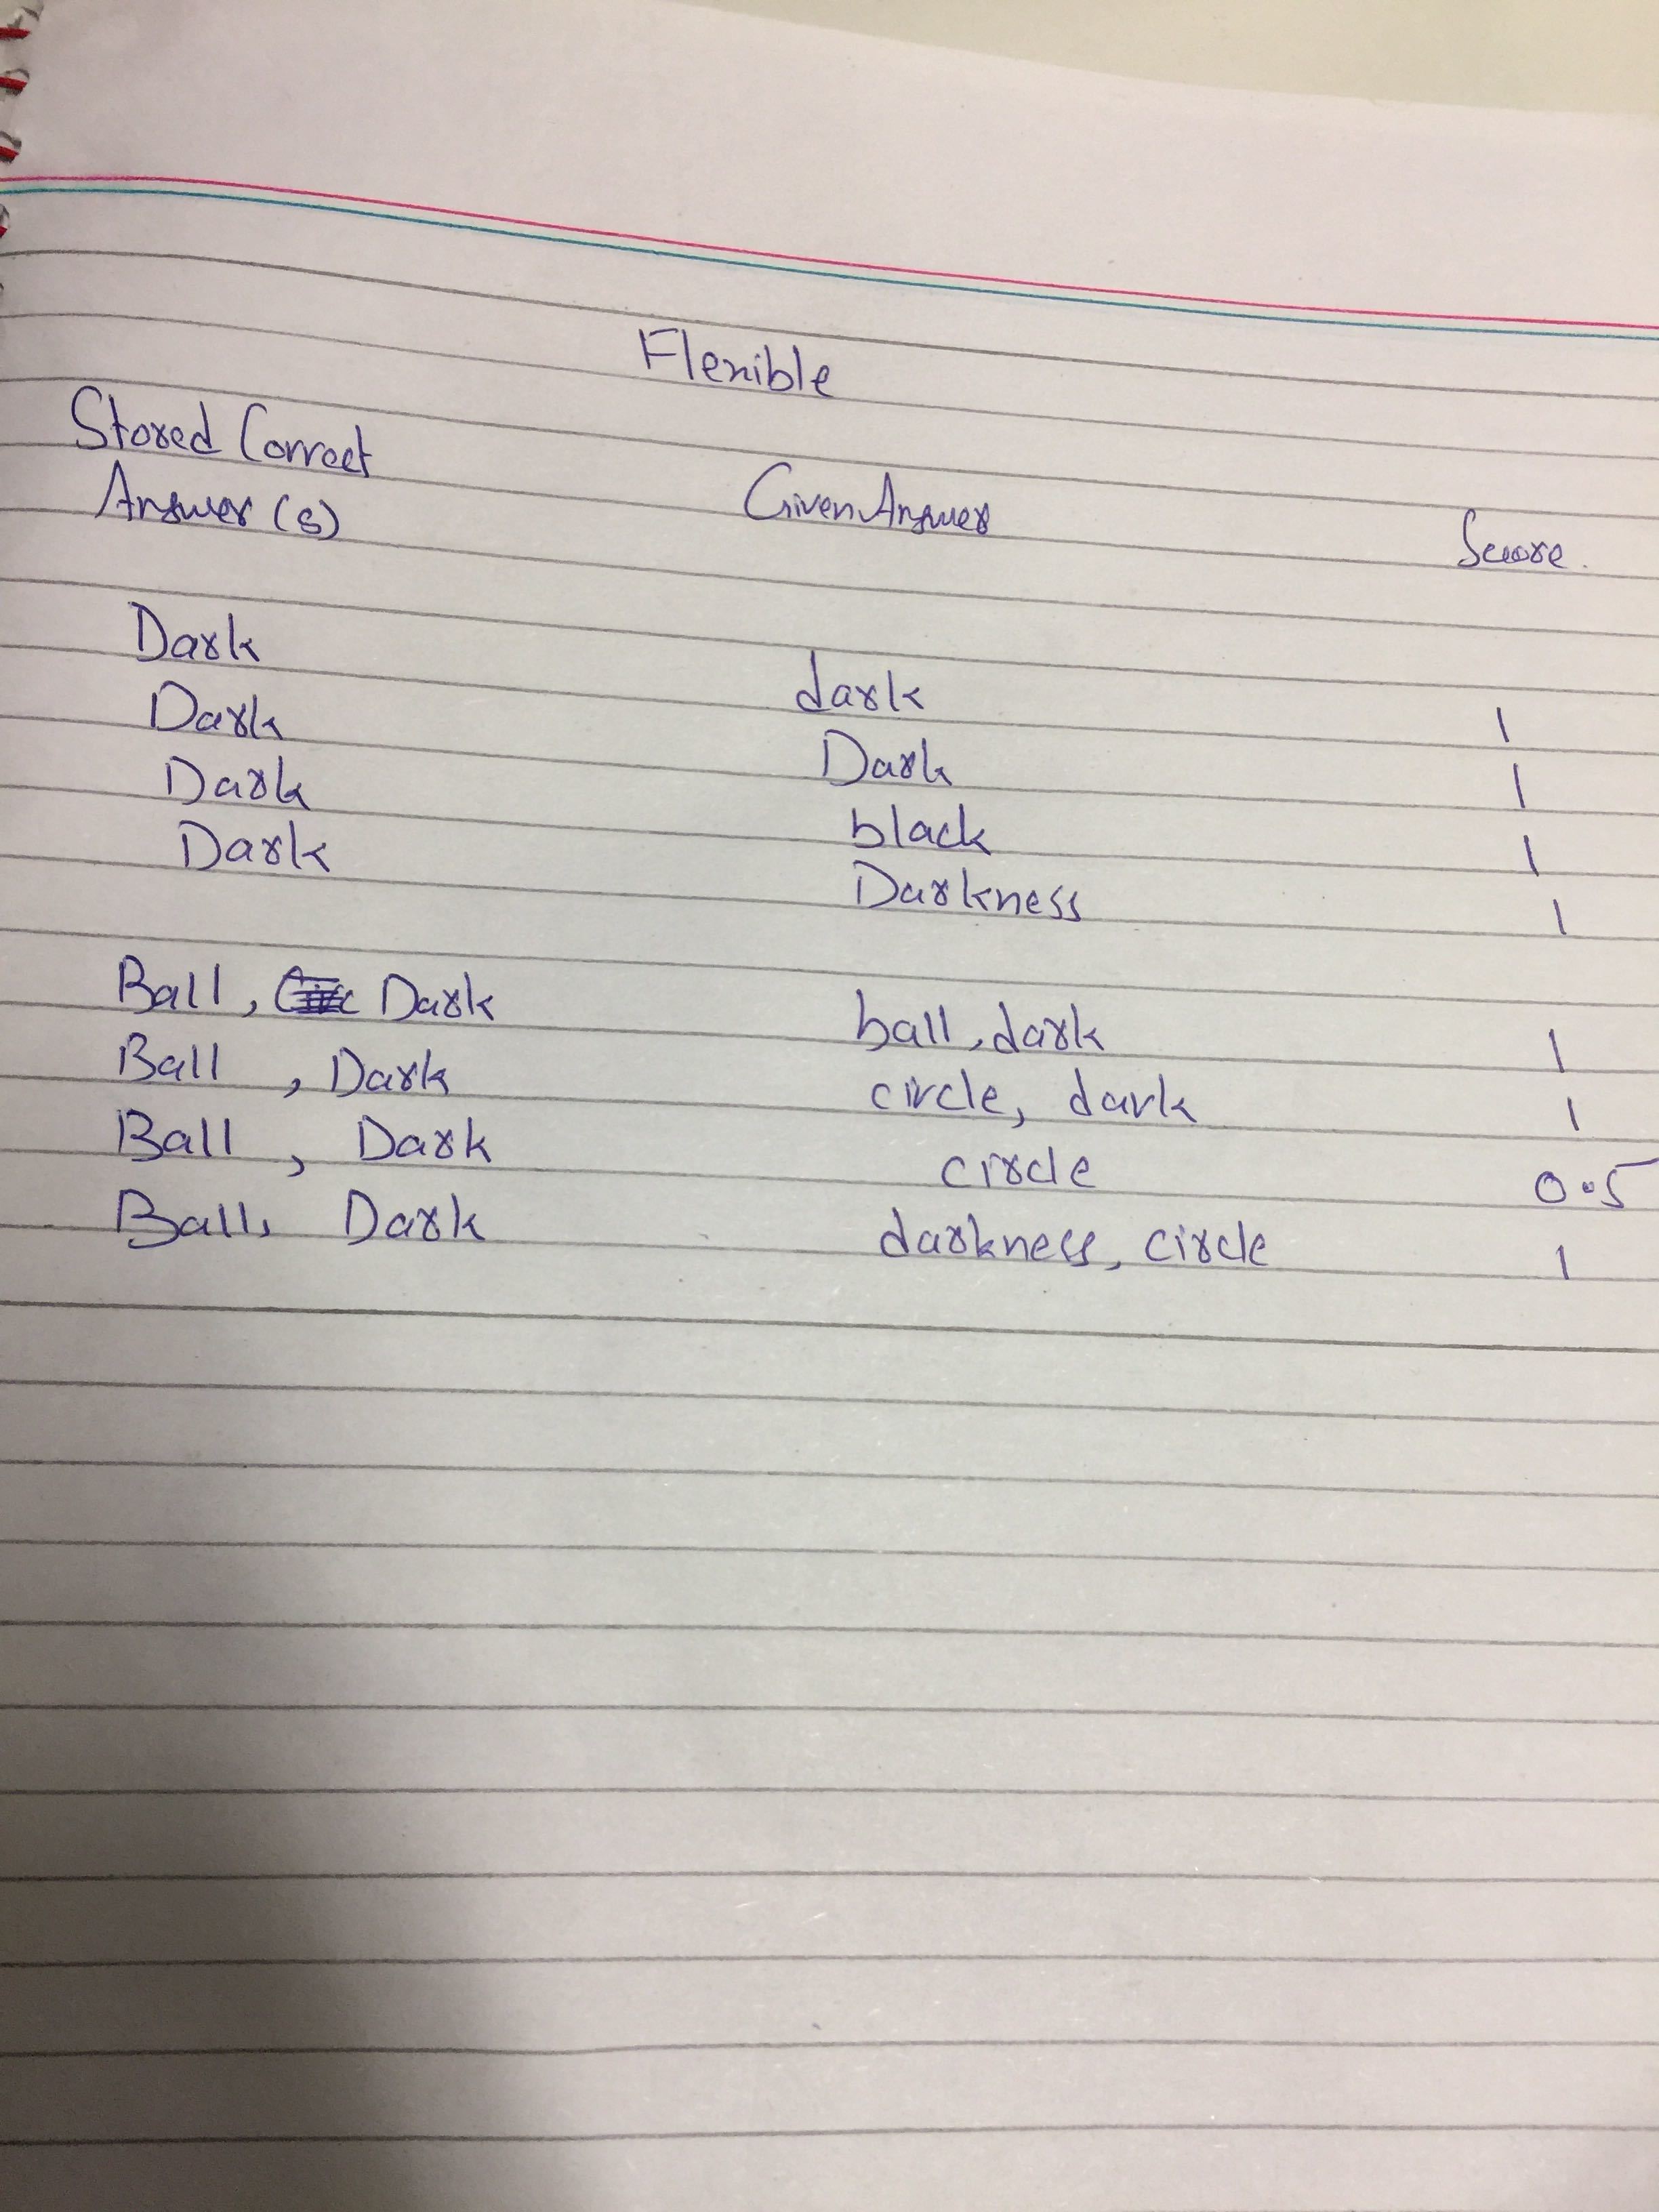 Flexible
Stored Correct
Answer (s)
Given Answer
Score.
Dark dark 1
Dark Dark 1
Dark black 1
Dark Darkness 1
Ball, Dark ball, dark 1
Ball , Dark circle, dark 1
Ball , Dark circle 0.5
Ball, Dark darkness, circle 1